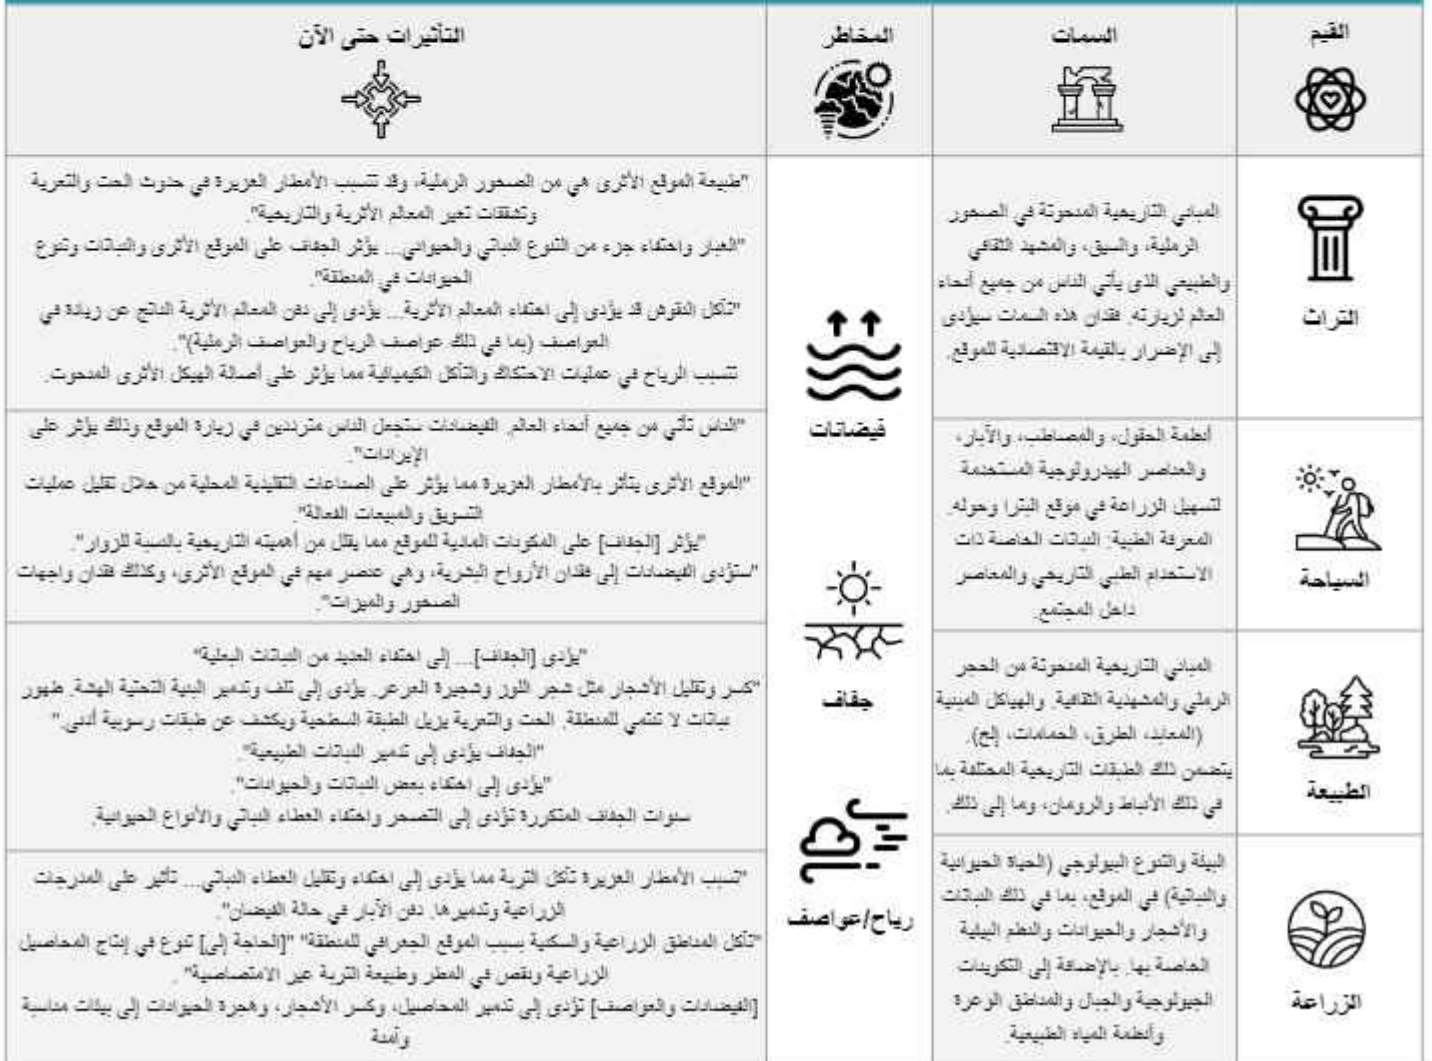 القيم
السمات
المخاطر
التأثيرات حتى الآن
التراث
المباني التاريخية المنحوتة في الصخور
الرملية، والسيق، والمشهد الثقافي
والطبيعي الذي يأتي الناس من جميع أنحاء
العالم لزيارته. فقدان هذه السمات سيؤدي
إلى الإضرار بالقيمة الاقتصادية للموقع.
فيضانات
جفاف
رياح/عواصف
"طبيعة الموقع الأثري هي من الصخور الرملية، وقد تتسبب الأمطار الغزيرة في حدوث الحت والتعرية
وتشققات تغير المعالم الأثرية والتاريخية".
"الغبار واختفاء جزء من التنوع النباتي والحيواني... يؤثر الجفاف على الموقع الأثري والنباتات وتنوع
الحيوانات في المنطقة".
"تآكل النقوش قد يؤدي إلى اختفاء المعالم الأثرية... يؤدي إلى دفن المعالم الأثرية الناتج عن زيادة في
العواصف (بما في ذلك عواصف الرياح والعواصف الرملية)".
تتسبب الرياح في عمليات الاحتكاك والتآكل الكيميائية مما يؤثر على أصالة الهيكل الأثري المنحوت.
السياحة
أنظمة الحقول، والمصاطب، والآبار،
والعناصر الهيدرولوجية المستخدمة
لتسهيل الزراعة في موقع البترا وحوله.
المعرفة الطبية: النباتات الخاصة ذات
الاستخدام الطبي التاريخي والمعاصر
داخل المجتمع.
"الناس تأتي من جميع أنحاء العالم. الفيضانات ستجعل الناس مترددين في زيارة الموقع وذلك يؤثر على
الإيرادات".
"الموقع الأثري يتأثر بالأمطار الغزيرة مما يؤثر على الصناعات التقليدية المحلية من خلال تقليل عمليات
التسويق والمبيعات الفعالة".
"يؤثر [الجفاف] على المكونات المادية للموقع مما يقلل من أهميته التاريخية بالنسبة للزوار".
"ستؤدي الفيضانات إلى فقدان الأرواح البشرية، وهي عنصر مهم في الموقع الأثري، وكذلك فقدان واجهات
الصخور والميزات".
الطبيعة
المباني التاريخية المنحوتة من الحجر
الرملي والمشهدية الثقافية. والهياكل المبنية
(المعابد، الطرق، الحمامات، إلخ).
يتضمن ذلك الطبقات التاريخية المختلفة بما
في ذلك الأنباط والرومان، وما إلى ذلك.
"يؤدي [الجفاف]... إلى اختفاء العديد من النباتات البعلية"
"كسر وتقليل الأشجار مثل شجر اللوز وشجيرة العرعر. يؤدي إلى تلف وتدمير البنية التحتية الهشة. ظهور
نباتات لا تنتمي للمنطقة. الحت والتعرية يزيل الطبقة السطحية ويكشف عن طبقات رسوبية أدنى."
"الجفاف يؤدي إلى تدمير النباتات الطبيعية".
"يؤدي إلى اختفاء بعض النباتات والحيوانات".
سنوات الجفاف المتكررة تؤدي إلى التصحر واختفاء الغطاء النباتي والأنواع الحيوانية.
الزراعة
البيئة والتنوع البيولوجي (الحياة الحيوانية
والنباتية) في الموقع، بما في ذلك النباتات
والأشجار والحيوانات والنظم البيئية
الخاصة بها. بالإضافة إلى التكوينات
الجيولوجية والجبال والمناطق الوعرة
وأنظمة المياه الطبيعية.
"تسبب الأمطار الغزيرة تآكل التربة مما يؤدي إلى اختفاء وتقليل الغطاء النباتي... تأثير على المدرجات
الزراعية وتدميرها. دفن الآبار في حالة الفيضان".
"تآكل المناطق الزراعية والسكنية بسبب الموقع الجغرافي للمنطقة" "[الحاجة إلى] تنوع في إنتاج المحاصيل
الزراعية ونقص في المطر وطبيعة التربة غير الامتصاصية".
[الفيضانات والعواصف] تؤدي إلى تدمير المحاصيل، وكسر الأشجار، وهجرة الحيوانات إلى بيئات مناسبة
وآمنة